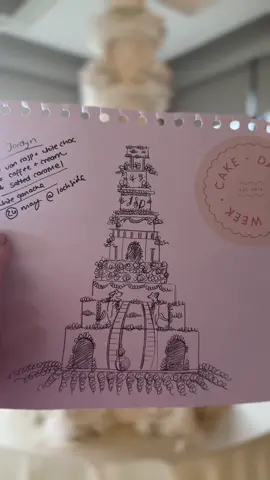 Jordyn
van rasp + white choc
coffee + cream
salted caramel
white ganache
24 may @ lochside
CAKE · DA
WEEK ·